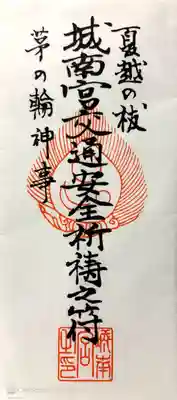 夏越の祓
城南宮交通安全祈祷之符
茅の輪神事
城南宮之印